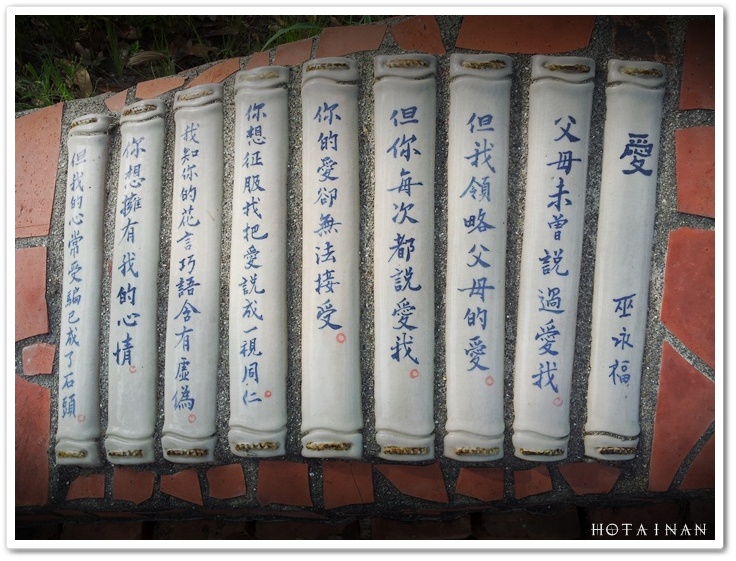 愛
巫永福
父母未曾說過愛我
但我領略父母的愛
但你每次都說愛我
你的愛卻無法接受
你想征服我把愛說成一視同仁
我知你的花言巧語含有虛偽
你想擁有我的心情
但我的心常受騙已成了石頭
HOTAINAN